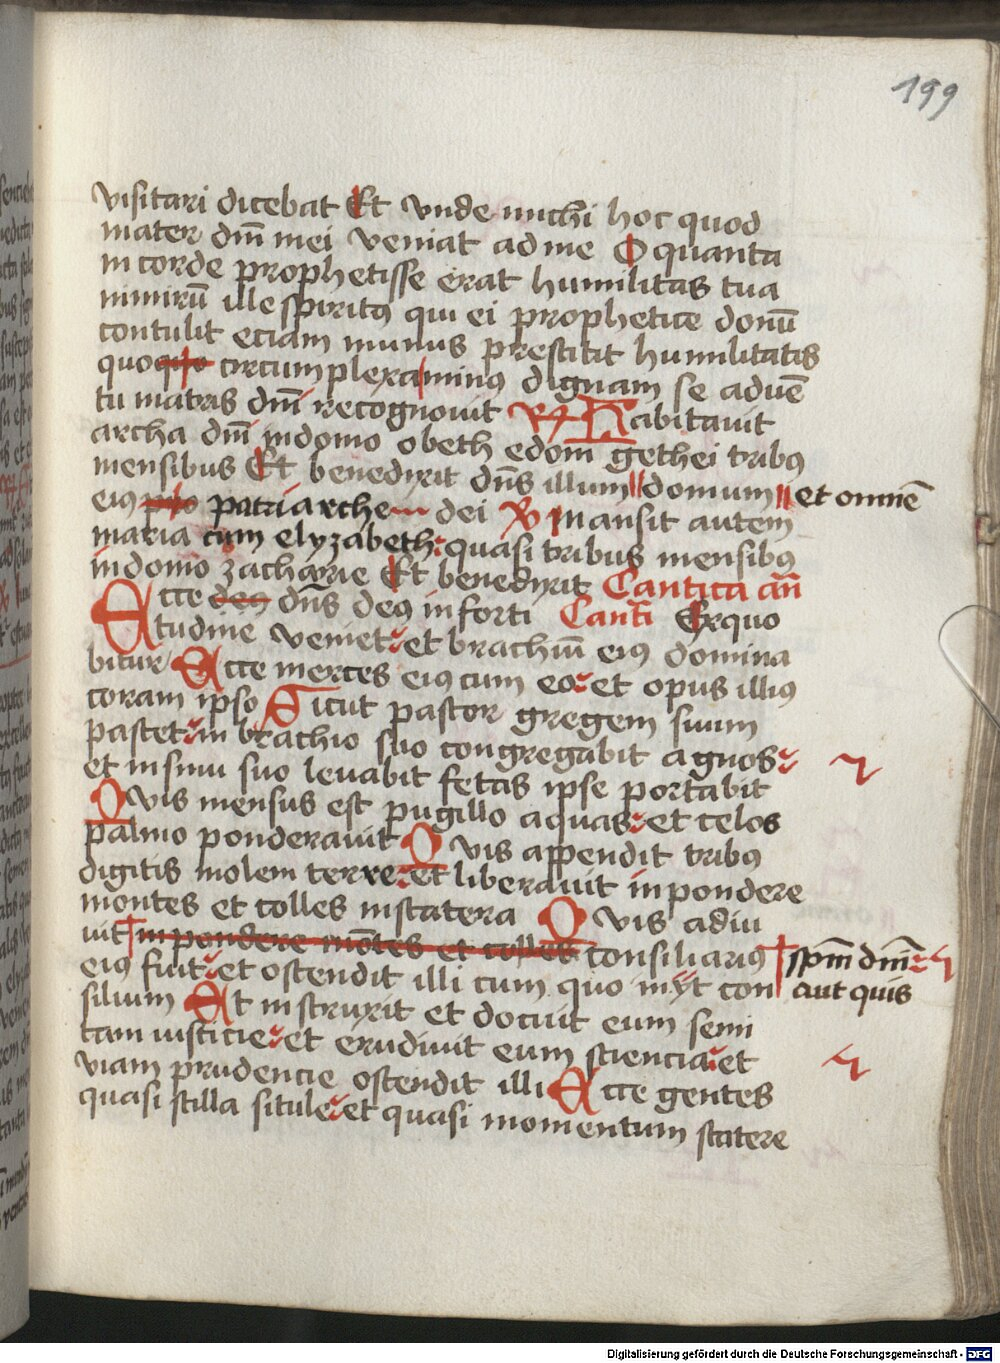 199
visitari dicebat Et vnde michi hoc quod
mater dn̄i mei veniat ad me O quanta
in corde prophetisse erat humilitas tua
nimirū ille spiritꝰ qui ei prophetice donū
contulit eciam munus prestitit humilitatis
quo circumplexa minus dignam se aduē
tu matris dn̄i recognouit R Habitauit
archa dn̄i in domo obeth edom gethei tribꝰ
mensibus Et benedixit dn̄s illum domum et omnē
eiꝰ patriarche dei V Mansit autem
maria cum elyzabeth quasi tribus mensibꝰ
in domo zacharie Et benedixit Cantica an̄
Ecce deꝰ dn̄s deꝰ in forti Canti Ex quo
tudine veniet et brachiū eiꝰ domina
bitur Ecce merces eiꝰ cum eo et opus illiꝰ
coram ipso Sicut pastor gregem suum
pastet in brachio suo congregabit agnos
et in sinu suo leuabit fetas ipse portabit
Quis mensus est pugillo aquas et celos
palmo ponderauit Quis appendit tribus
digitis molem terre et liberauit in pondere
montes et colles in statera Quis adiu
uit in pondere mōtes et colles consiliariꝰ spm̄ dn̄i
eiꝰ fuit et ostendit illi cum quo inijt con aut quis
silium Et instruxit et docuit eum semi
tam iusticie et erudiuit eum sciencia et
viam prudencie ostendit illi Ecce gentes
quasi stilla situle et quasi momentum statere
Digitalisierung gefördert durch die Deutsche Forschungsgemeinschaft - DFG